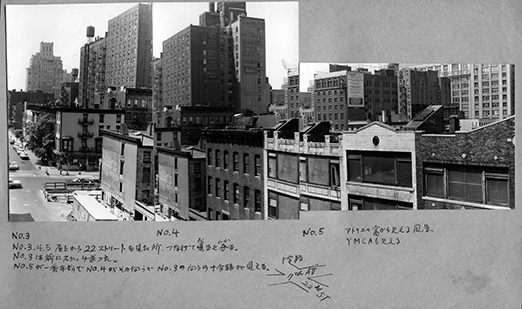 NO.3
NO.4
NO.5 アトリエの窓から見える風景
YMCAも見える
NO.3.4.5 屋上から22ストリートを つなげて
NO.3は前に 送った。
NO.5が一番手前で NO.4がその向うで NO.3の向うの十字路が見える。
十字路
7th AV
22 ST